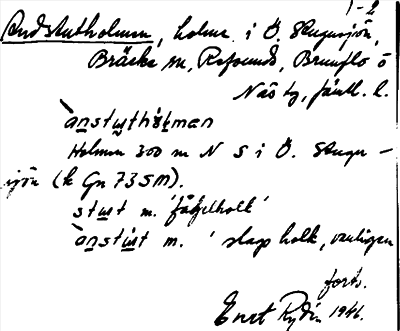 1-2
Andstutholmen, holme i Ö. Skugusjön,
Bräcke sn, Refsunds, Brunflo o
Näs tg, Jämtl. l.
`änstustholman
Holmen 300 m N S i Ö. Skugu-
sjön (k Gn 735M).
stust m. 'fågelholk'
`änstust m. ' slags holk, vanligen
forts.
Enet Rydin 1946.